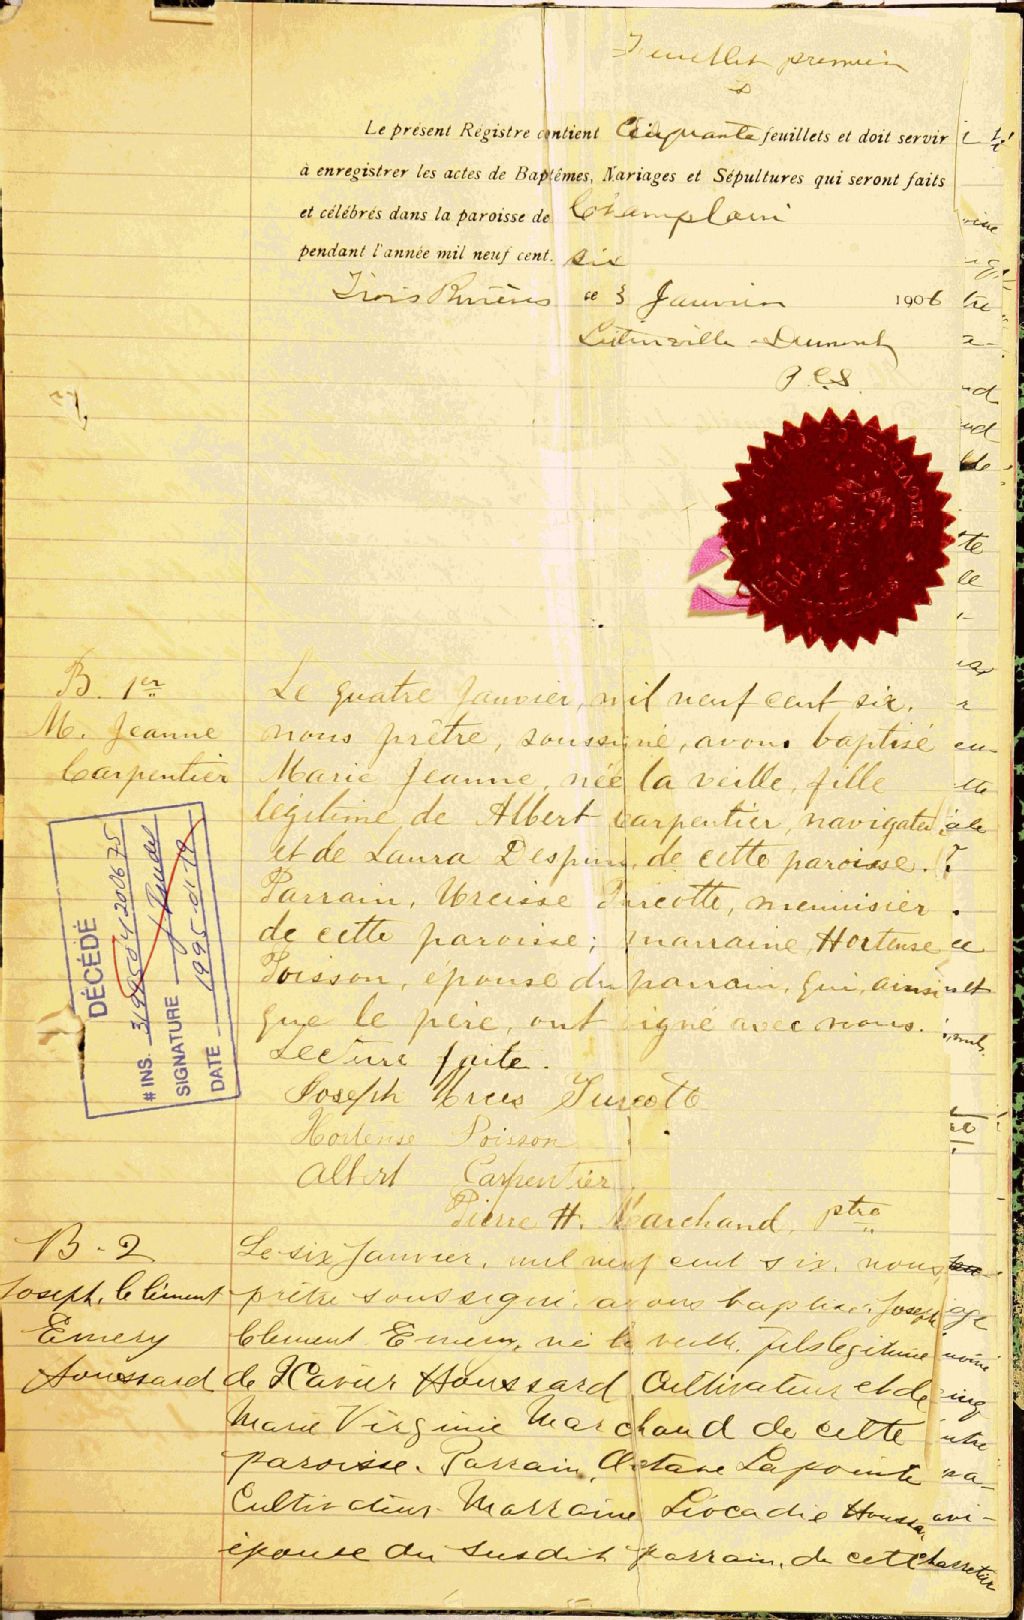 Feuillet premier
Le présent Régistre contient Cinquante feuillets et doit servir
à enregistrer les actes de Baptêmes, Mariages et Sépultures qui seront faits
et célébrés dans la paroisse de Champlain
pendant l'année mil neuf cent. six
Trois Rivières ce 3 Janvier 1906
P.C.S.
B. 1er
M. Jeanne
Carpentier
Le quatre Janvier, mil neuf cent six,
nous prêtre, soussigné, avons baptisé
Marie Jeanne, née la veille, fille
légitime de Albert Carpentier, navigateur
et de Laura Despins, de cette paroisse.
Parrain, Urcisse Turcotte, menuisier
de cette paroisse; marraine, Hortense
Poisson, épouse du parrain, qui, ainsi
que le père, ont signé avec nous.
Lecture faite.
DÉCÉDÉ
# INS.
SIGNATURE
DATE 1995-01-19
Joseph Urcis Turcotte
Hortense Poisson
Albert Carpentier
Pierre H. Marchand, ptre
B. 2
Joseph, Clément
Emery
Houssard
Le six Janvier, mil neuf cent six, nous
prêtre soussigné, avons baptisé Joseph
Clement Emery, né la veille, fils légitime
de Xavier Houssard Cultivateur et de
Marie Virginie Marchand de cette
paroisse. Parrain, Octave Lapointe
Cultivateur. Marraine Léocadie Houssard
épouse du susdit parrain, de cette